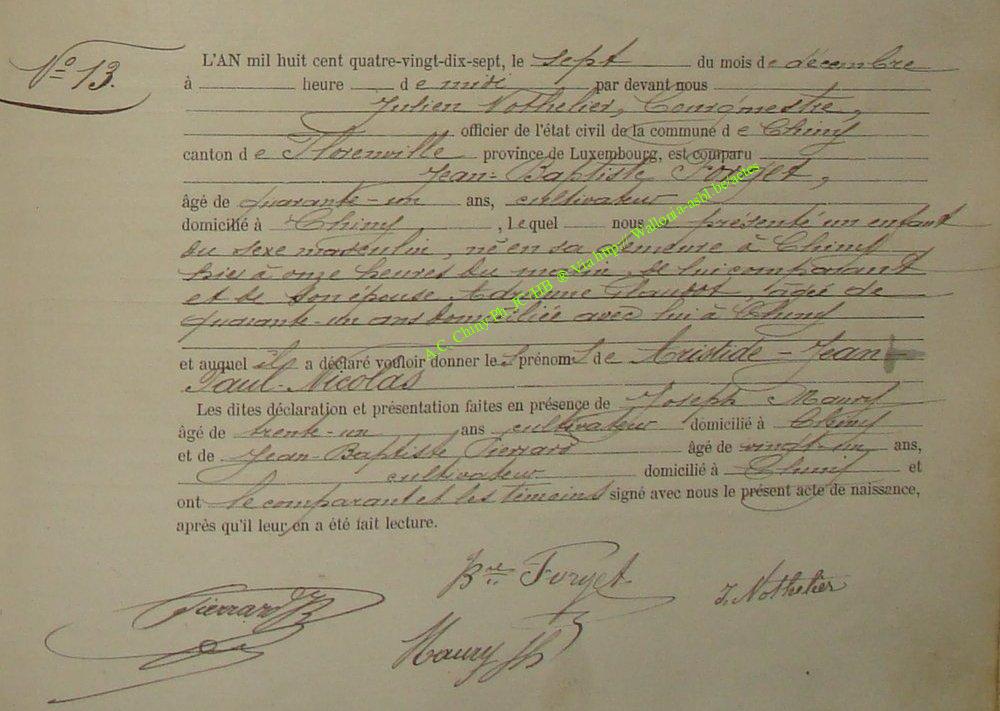 N° 13.
L'AN mil huit cent quatre-vingt-dix-sept, le sept du mois de décembre
à heure de midi par devant nous
Julien Nothelier, Bourgmestre,
officier de l'état civil de la commune de Chiny
canton de Florenville province de Luxembourg, est comparu
Jean-Baptiste Forget,
âgé de quarante-un ans, cultivateur
domicilié à Chiny, lequel nous présenté un enfant
du sexe masculin, né en sa demeure à Chiny
hier à onze heures du matin, de lui comparant
et de son épouse, âgée de
quarante-un ans domiciliée avec lui à Chiny
et auquel il a déclaré vouloir donner les prénoms de Aristide-Jean
Paul-Nicolas
Les dites déclaration et présentation faites en présence de Joseph Maury
âgé de trente-un ans cultivateur domicilié à Chiny
et de Jean-Baptiste Pierrard âgé de vingt-un ans,
cultivateur domicilié à Chiny et
ont le comparant et les témoins signé avec nous le présent acte de naissance,
après qu'il leur en a été fait lecture.
Bte Forget
J. Nothelier
Pierrard JB
Maury Jh
A.C. Chiny Ph. JC HB ® Via http:// Wallonia-asbl.be/actes